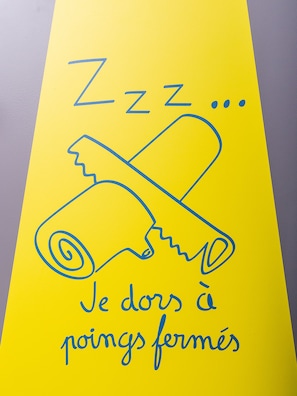 Zzz...
Je dors à
poings fermés